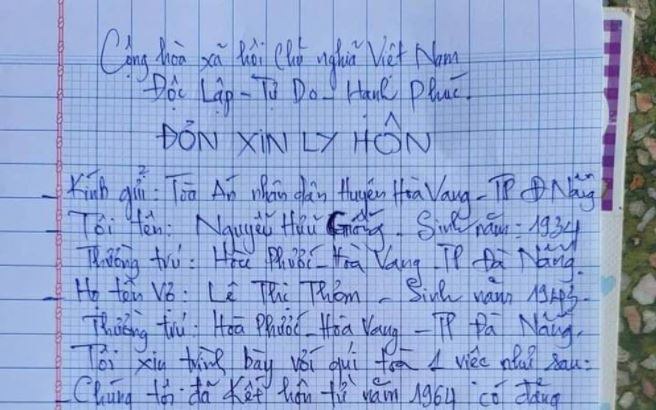 Cộng hòa xã hội Chủ nghĩa Việt Nam
Độc Lập - Tự Do - Hạnh Phúc.
ĐƠN XIN LY HÔN
- Kính gửi: Tòa Án nhân dân Huyện Hòa Vang - TP Đ Nẵng
- Tôi tên: Nguyễn Hữu - Sinh năm: 1934
Thường trú: Hòa Phước - Hòa Vang - TP Đà Nẵng.
- Họ tên Vợ: Lê Thị Thơm - Sinh năm 1943.
Thường trú: Hòa Phước - Hòa Vang - TP Đà Nẵng.
Tôi xin trình bày với quí tòa 1 việc như sau:
- Chúng tôi đã kết hôn từ năm 1964 có đăng